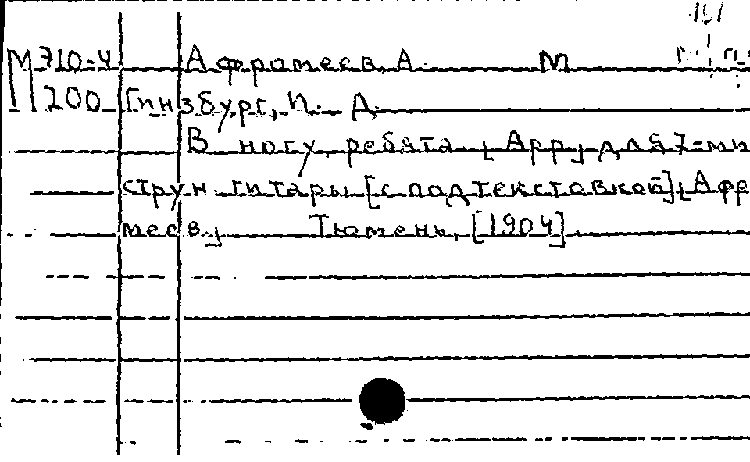 М 710-4 Афромеев, А. М
200 Гинзбург, И. Д.
В ногу, ребята [Арр.] для 7-ми
струн. гитары [с подтекстовкой] [Афро
меев.] Тюмень, [1904].